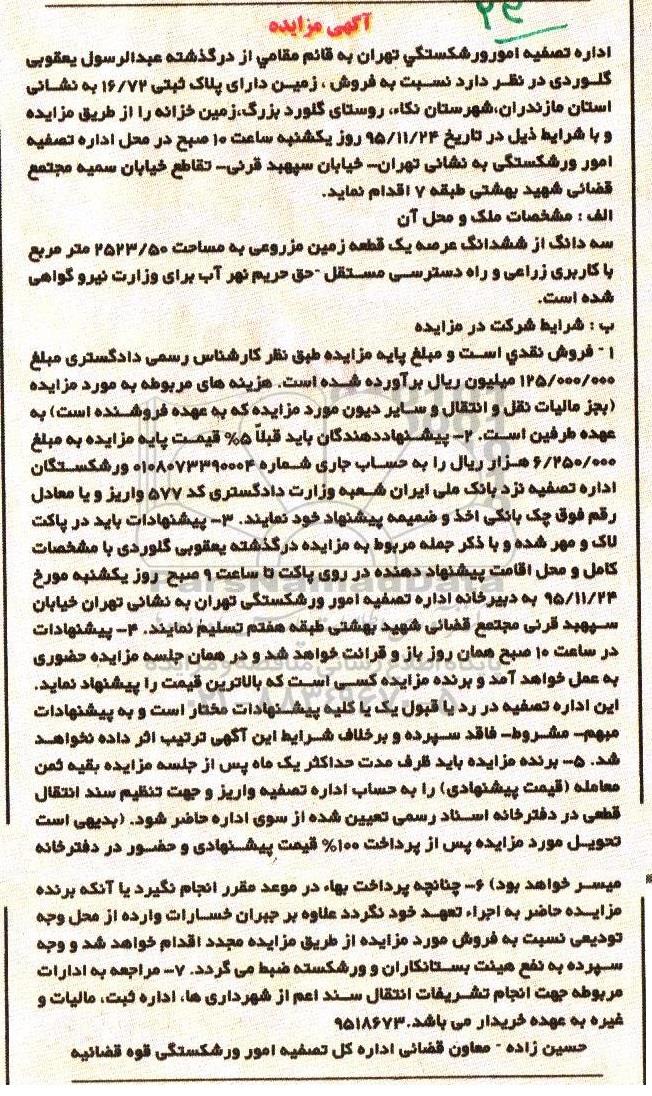 ۲۶
آگهی مزایده
اداره تصفیه امورورشکستگي تهران به قائم مقامي از درگذشته عبدالرسول یعقوبی
گلوردی در نظر دارد نسبت به فروش ، زمین دارای پلاک ثبتی ۱۶/۷۲ به نشانی
استان مازندران،شهرستان نکاء، روستای گلورد بزرگ،زمین خزانه را از طریق مزایده
و با شرایط ذیل در تاریخ ۹۵/۱۱/۲۴ روز یکشنبه ساعت ۱۰ صبح در محل اداره تصفیه
امور ورشکستگی به نشانی تهران– خیابان سپهبد قرنی– تقاطع خیابان سمیه مجتمع
قضائی شهید بهشتی طبقه ۷ اقدام نماید.
الف : مشخصات ملک و محل آن
سه دانگ از ششدانگ عرصه یک قطعه زمین مزروعی به مساحت ۲۵۲۳/۵۰ متر مربع
با کاربری زراعی و راه دسترسی مستقل -حق حریم نهر آب برای وزارت نیرو گواهی
شده است.
ب : شرایط شرکت در مزایده
۱ - فروش نقدي است و مبلغ پایه مزایده طبق نظر کارشناس رسمی دادگستری مبلغ
۱۲۵/۰۰۰/۰۰۰ میلیون ریال برآورده شده است. هزینه های مربوطه به مورد مزایده
(بجز مالیات نقل و انتقال و سایر دیون مورد مزایده که به عهده فروشنده است) به
عهده طرفین است. ۲– پیشنهاددهندگان باید قبلاً ۵% قیمت پایه مزایده به مبلغ
۶/۲۵۰/۰۰۰ هزار ریال را به حساب جاری شماره ۰۱۰۸۰۷۳۳۹۰۰۰۴ ورشکستگان
اداره تصفیه نزد بانک ملی ایران شعبه وزارت دادگستری کد ۵۷۷ واریز و یا معادل
رقم فوق چک بانکی اخذ و ضمیمه پیشنهاد خود نمایند. ۳– پیشنهادات باید در پاکت
لاک و مهر شده و با ذکر جمله مربوط به مزایده درگذشته یعقوبی گلوردی با مشخصات
کامل و محل اقامت پیشنهاد دهنده در روی پاکت تا ساعت ۹ صبح روز یکشنبه مورخ
۹۵/۱۱/۲۴ به دبیرخانه اداره تصفیه امور ورشکستگی تهران به نشانی تهران خیابان
سپهبد قرنی مجتمع قضائی شهید بهشتی طبقه هفتم تسلیم نمایند. ۴– پیشنهادات
در ساعت ۱۰ صبح همان روز باز و قرائت خواهد شد و در همان جلسه مزایده حضوری
به عمل خواهد آمد و برنده مزایده کسی است که بالاترین قیمت را پیشنهاد نماید.
این اداره تصفیه در رد یا قبول یک یا کلیه پیشنهادات مختار است و به پیشنهادات
مبهم– مشروط– فاقد سپرده و برخلاف شرایط این آگهی ترتیب اثر داده نخواهد
شد. ۵– برنده مزایده باید ظرف مدت حداکثر یک ماه پس از جلسه مزایده بقیه ثمن
معامله (قیمت پیشنهادی) را به حساب اداره تصفیه واریز و جهت تنظیم سند انتقال
قطعی در دفترخانه اسناد رسمی تعیین شده از سوی اداره حاضر شود. (بدیهی است
تحویل مورد مزایده پس از پرداخت ۱۰۰% قیمت پیشنهادی و حضور در دفترخانه
میسر خواهد بود) ۶– چنانچه پرداخت بهاء در موعد مقرر انجام نگیرد یا آنکه برنده
مزایده حاضر به اجراء تعهد خود نگردد علاوه بر جبران خسارات وارده از محل وجه
تودیعی نسبت به فروش مورد مزایده از طریق مزایده مجدد اقدام خواهد شد و وجه
سپرده به نفع هیئت بستانکاران و ورشکسته ضبط می گردد. ۷– مراجعه به ادارات
مربوطه جهت انجام تشریفات انتقال سند اعم از شهرداری ها، اداره ثبت، مالیات و
غیره به عهده خریدار می باشد.۹۵۱۸۶۷۳
حسین زاده - معاون قضائی اداره کل تصفیه امور ورشکستگی قوه قضائیه
ParsNamadData
پایگاه اطلاع رسانی مناقصه و مزایده